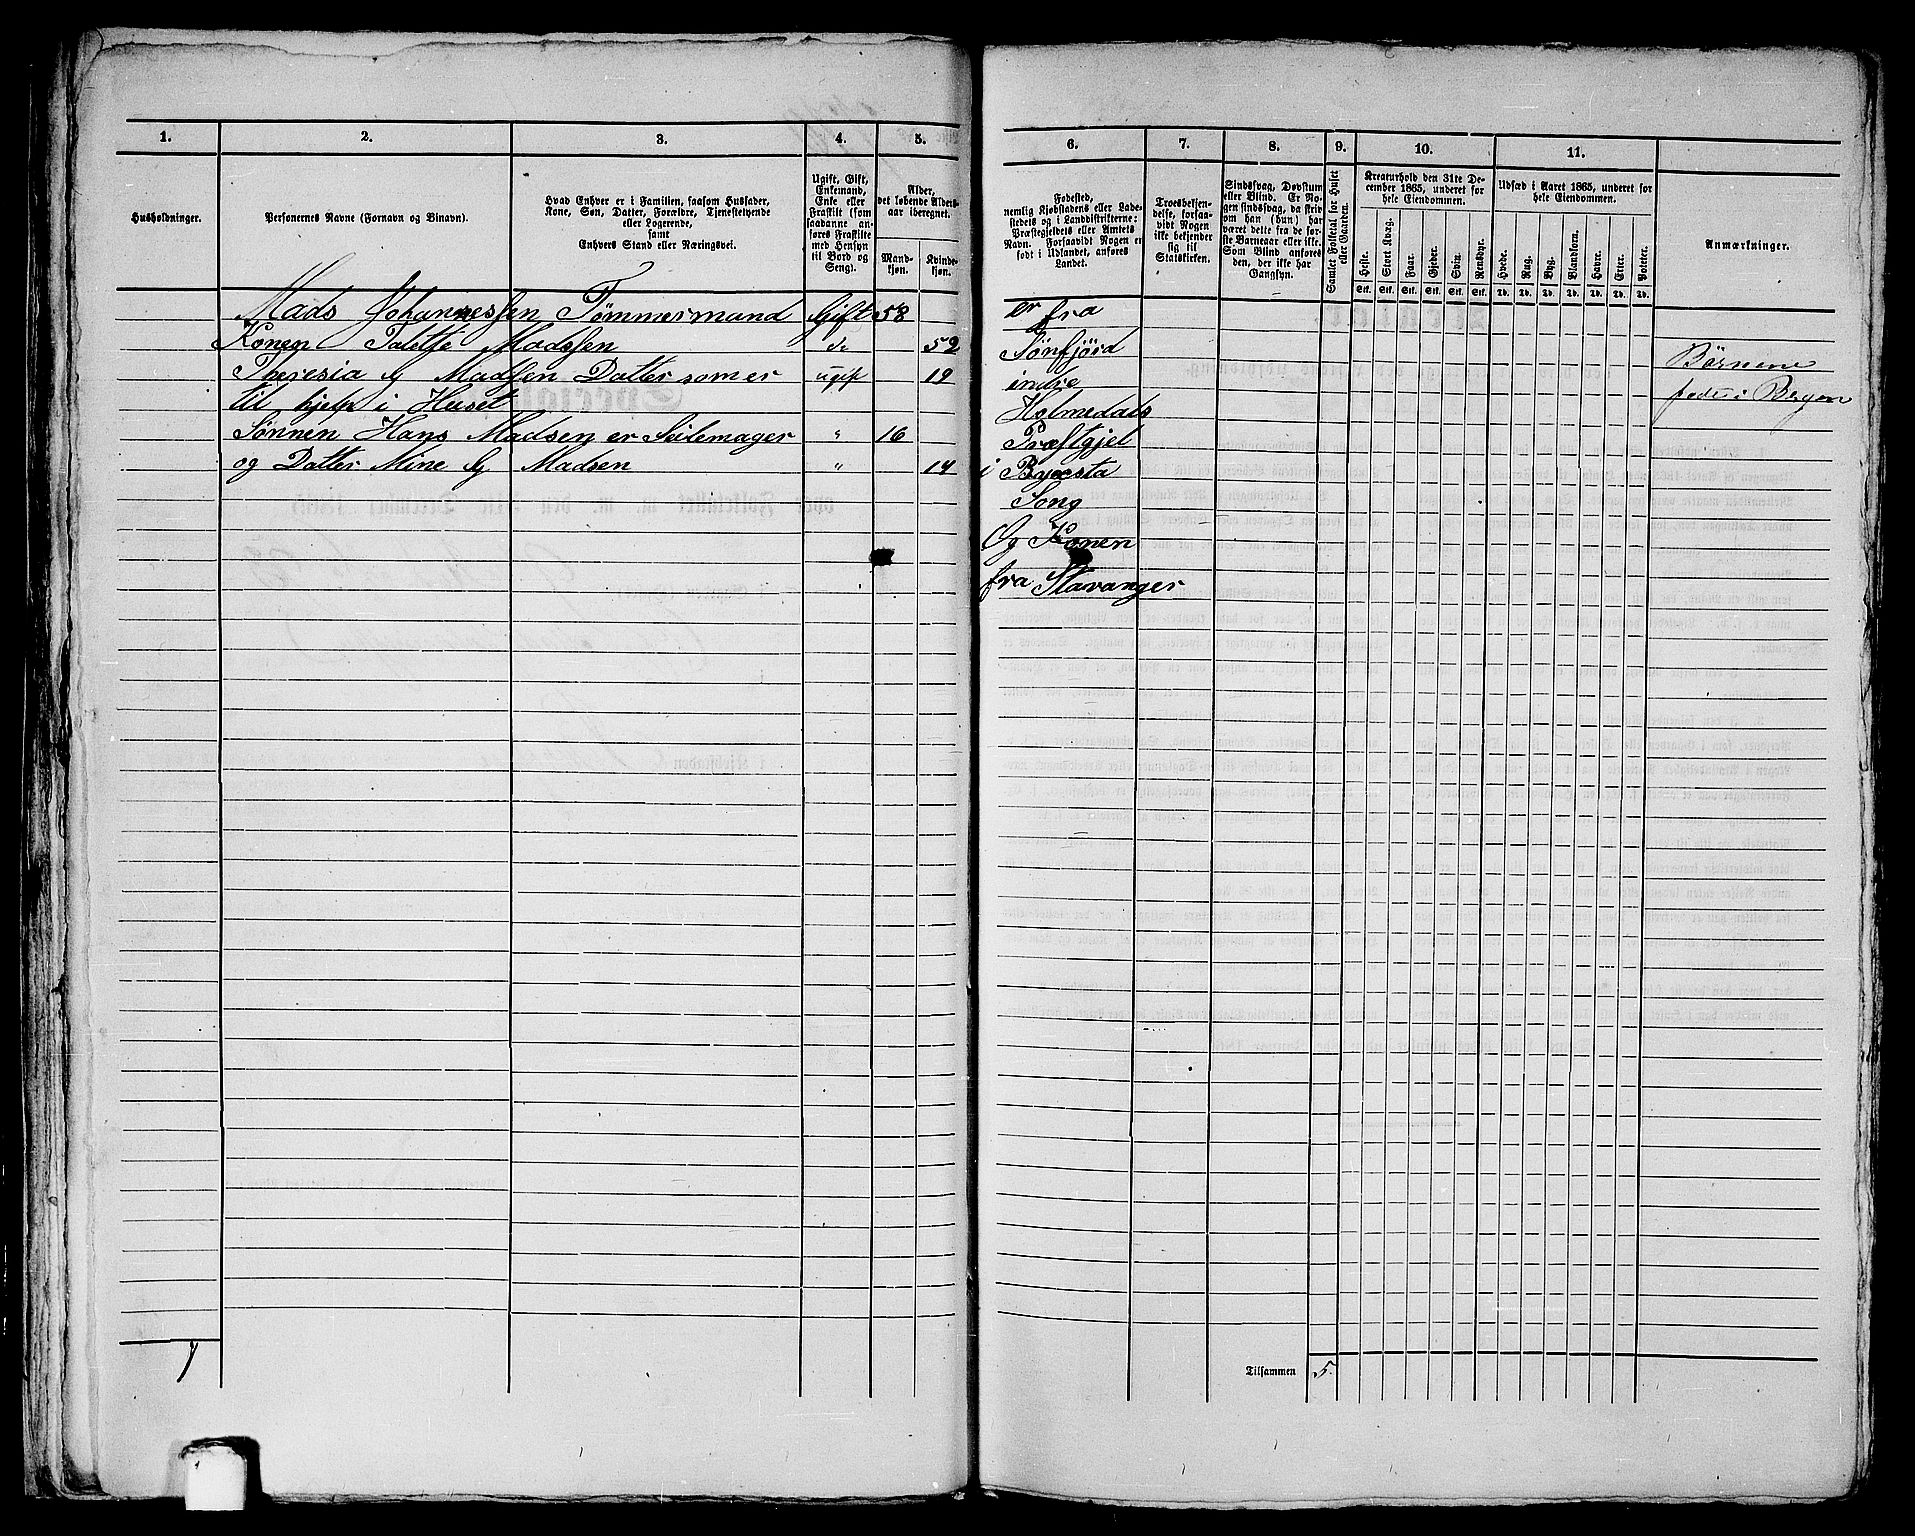 1.
2.
3.
4.
5.
Husholdninger.
Personernes Navne (Fornavn og Binavn).
Hvad Enhver er i Familien, saasom Husfader,
Kone, Søn, Datter, Forældre, Tjenestetyende
eller Logerende,
samt
Enhvers Stand eller Næringsvei.
Ugift, Gift,
Enkemand,
Enke eller
Fraskilt (som
saadanne an-
føres Fraskilte
med Hensyn
til Bord og
Seng).
Alder,
det løbende Alders-
aar iberegnet.
Mand-
kjøn.
Kvinde-
kjøn.
Mads Johannessen Tømmermand Gift 58
Konen Taletje Madssen do 52
Theresia G Madsen Datter som er ugift 19
til hjelp i Huset
Sønnen Hans Madsen er Seilemager " 16
og Datter Mine G Madsen " 14
6.
7.
8.
9.
10.
11.
Fødested,
nemlig Kjøbstadens eller Lade-
stedets og i Landdistrikterne:
Præstegjeldets eller Amtets
Navn. Forsaavidt Nogen er
født i Udlandet, anføres
Landet.
Troesbekjen-
delse, forsaa-
vidt Nogen
ikke bekjender
sig til
Statskirken.
Sindssvag, Døvstum
eller Blind. Er No-
gen sindssvag, da skriv
om han (hun) har
været dette fra de før-
ste Barneaar eller ikke.
Som Blind anføres
den, der ikke har
Gangsyn.
Samlet Folketal for Huset
eller Gaarden.
Kreaturhold den 31te De-
cember 1865, underet for
hele Eiendommen.
Heste.
Stort Kvæg.
Faar.
Gjeder.
Svin.
Rensdyr.
Stk. Stk. Stk. Stk. Stk. Stk.
Udsæd i Aaret 1865, underet for
hele Eiendommen.
Hvede.
Rug.
Byg.
Blandkorn.
Havre.
Erter.
Poteter.
Td. Td. Td. Td. Td. Td. Td.
Anmærkninger.
er fra
Sønfjörd
indre
Holmedals
Præstgjel
i
Song
Og Konen
fra Stavanger
Børnene
føde i Bergen
1
Tilsammen 5.